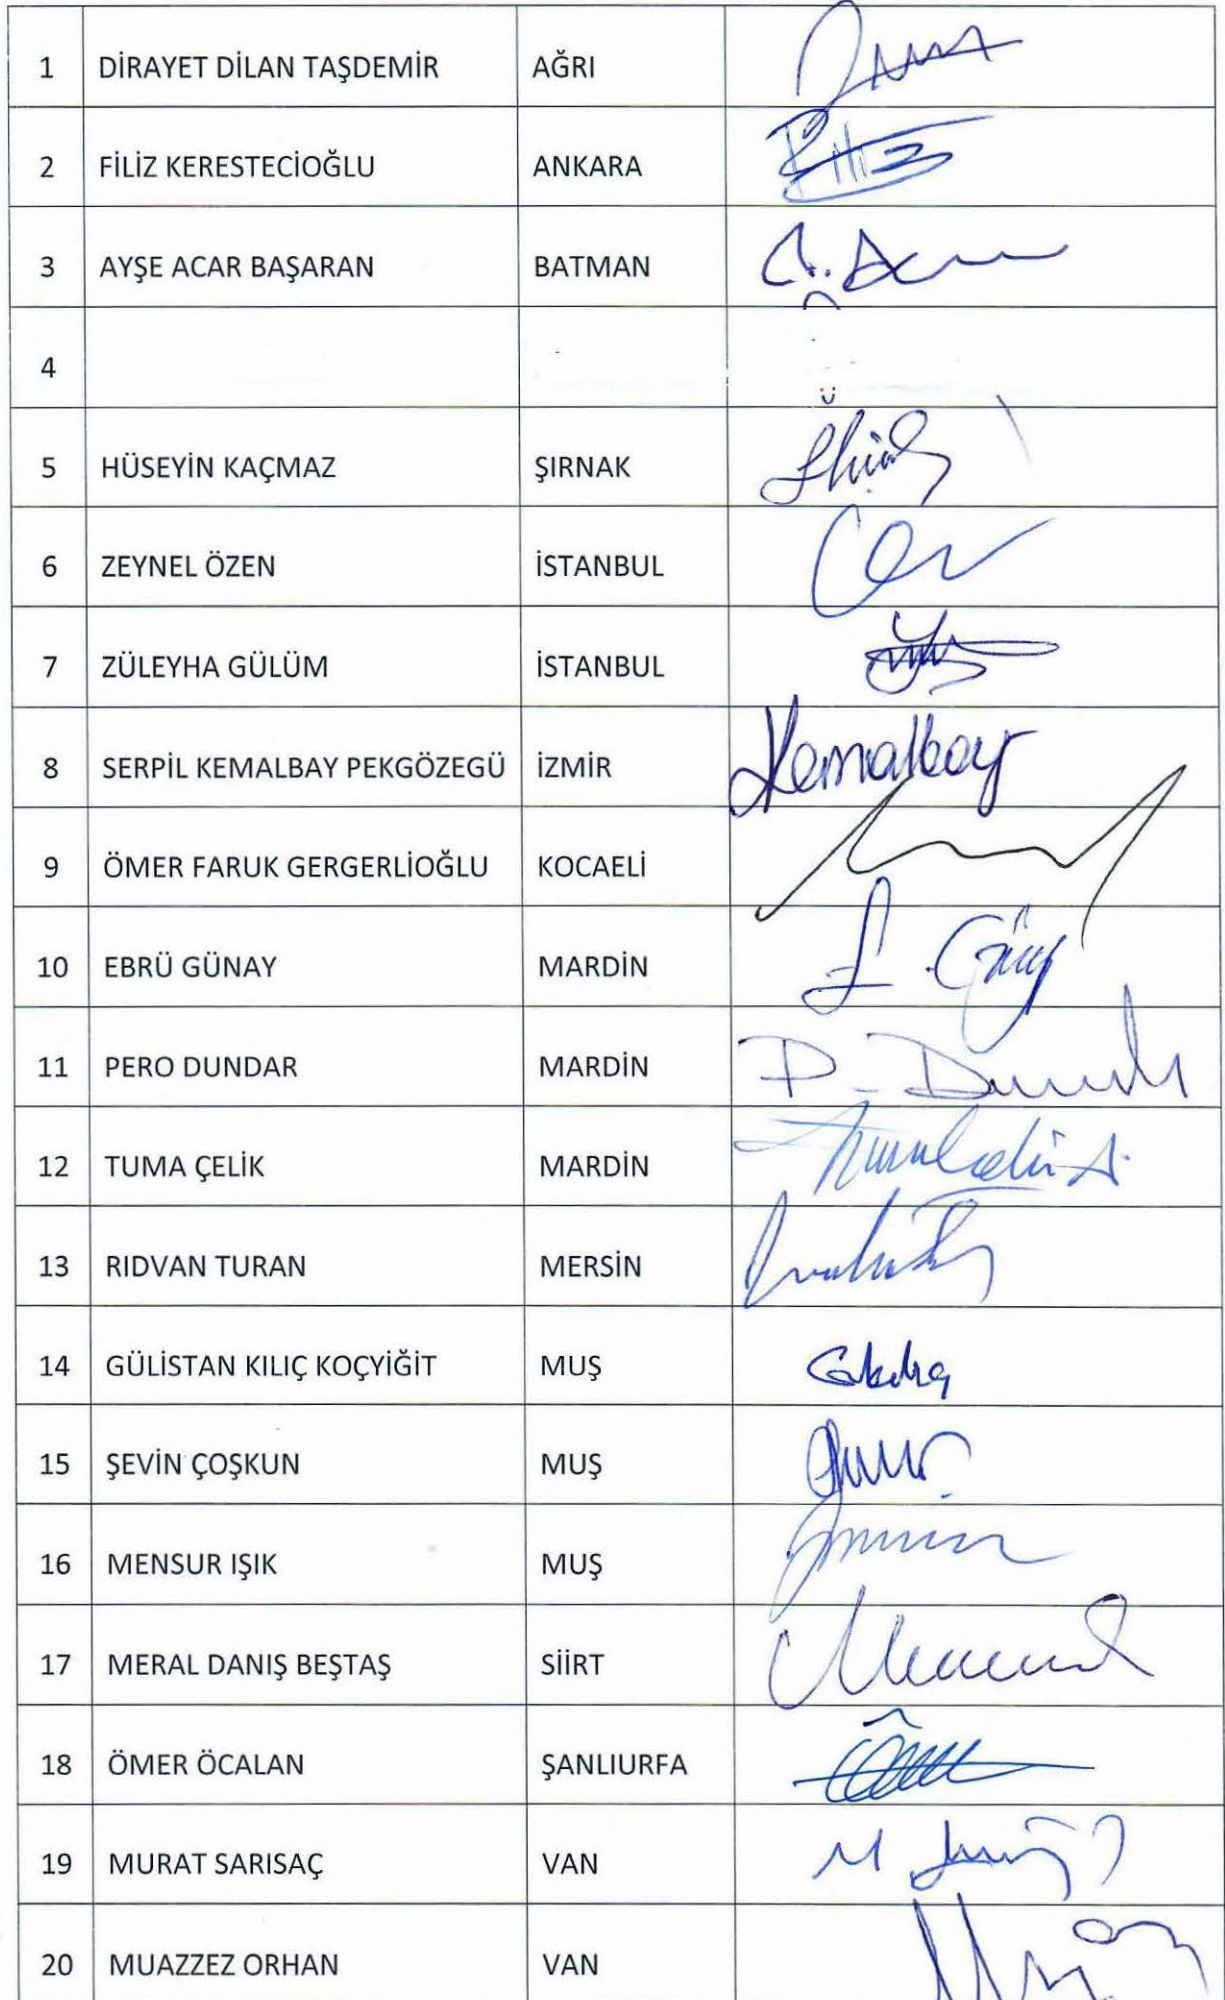 1 DİRAYET DİLAN TAŞDEMİR AĞRI
2 FİLİZ KERESTECİOĞLU ANKARA
3 AYŞE ACAR BAŞARAN BATMAN
4
5 HÜSEYİN KAÇMAZ ŞIRNAK
6 ZEYNEL ÖZEN İSTANBUL
7 ZÜLEYHA GÜLÜM İSTANBUL
8 SERPİL KEMALBAY PEKGÖZEGÜ İZMİR Kemalbay
9 ÖMER FARUK GERGERLİOĞLU KOCAELİ
10 EBRÜ GÜNAY MARDİN
11 PERO DUNDAR MARDİN
12 TUMA ÇELİK MARDİN
13 RIDVAN TURAN MERSİN
14 GÜLİSTAN KILIÇ KOÇYİĞİT MUŞ
15 ŞEVİN ÇOŞKUN MUŞ
16 MENSUR IŞIK MUŞ
17 MERAL DANIŞ BEŞTAŞ SİİRT
18 ÖMER ÖCALAN ŞANLIURFA
19 MURAT SARISAÇ VAN
20 MUAZZEZ ORHAN VAN